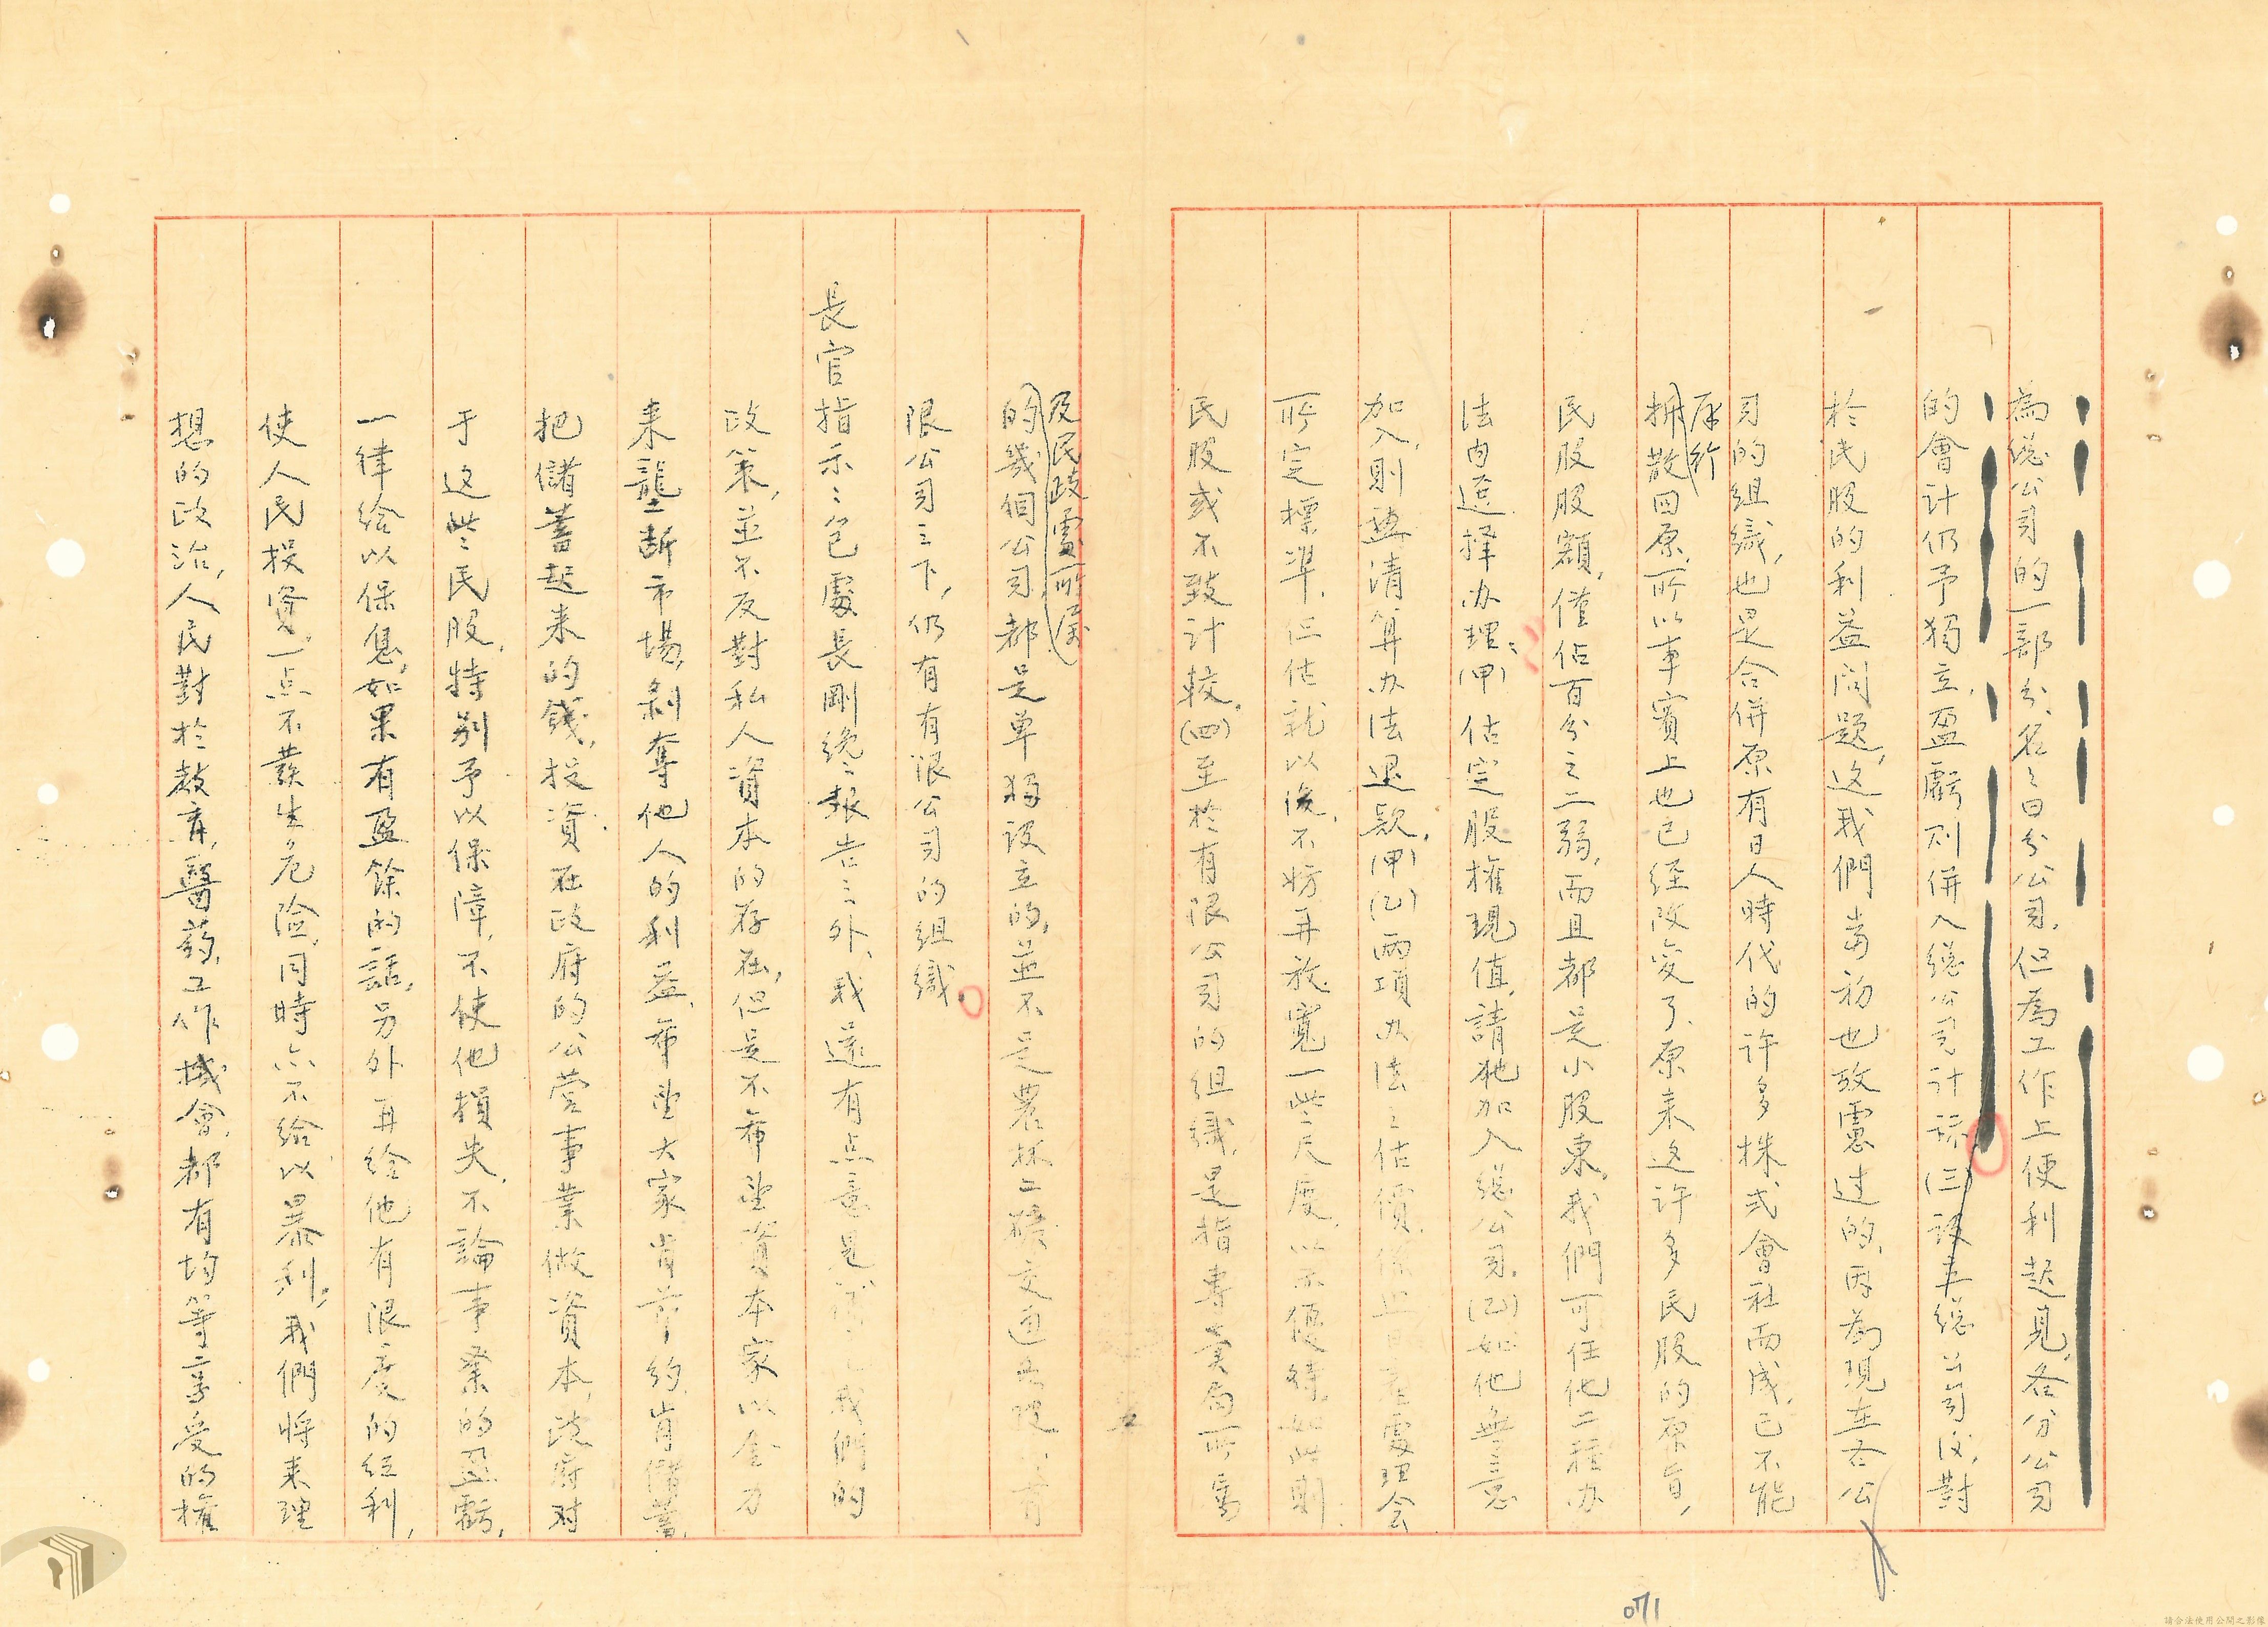 為總公司的一部分,名之曰分公司.但為工作上便利起見,各分公司
的會计仍予獨立,盈虧则併入總公司计标(三)设立總公司後,對
於民股的利益问题,这我們當初也攷慮过的,因為現在各公
司的组織,也是合併原有日人時代的许多株式會社而成,已不能
原行
拆散回原.所以事實上也已经改变了.原来这许多民股的原旨,
民股股額,僅佔百分之二弱,而且都是小股東,我們可任他二種办
法内选择办理:(甲)估定股權現值,請他加入總公司.(乙)如他無意
加入,則照清算办法退款,(甲)(乙)兩項办法之估價,係由日產處理会
所定標準.但估就以後,不妨再放寬一些尺度,以示優待,如此則
民股或不致计較.(四)至於有限公司的组織,是指專賣局所属
及民政處所屬
的幾個公司,都是单獨设立的,並不是農林工礦交通公司,有
限公司之下,仍有有限公司的组織
長官指示:包處長剛纔報告之外,我還有点意見,我們的
政策,並不反對私人資本的存在,但是不希望資本家以金力
来壟断市場,剥奪他人的利益,希望大家肯节约,肯儲蓄,
把儲蓄起来的錢,投資在政府的公营事業做資本,政府对
于这些民股,特别予以保障,不使他損失,不論事業的盈虧,
一律给以保息,如果有盈餘的話,另外再给他有限度的红利,
使人民投資,一点不發生危险,同時亦不给以暴利,我們将来理
想的政治,人民對於教育,醫药,工作機會,都有均等享受的權
071
請合法使用公開之影像